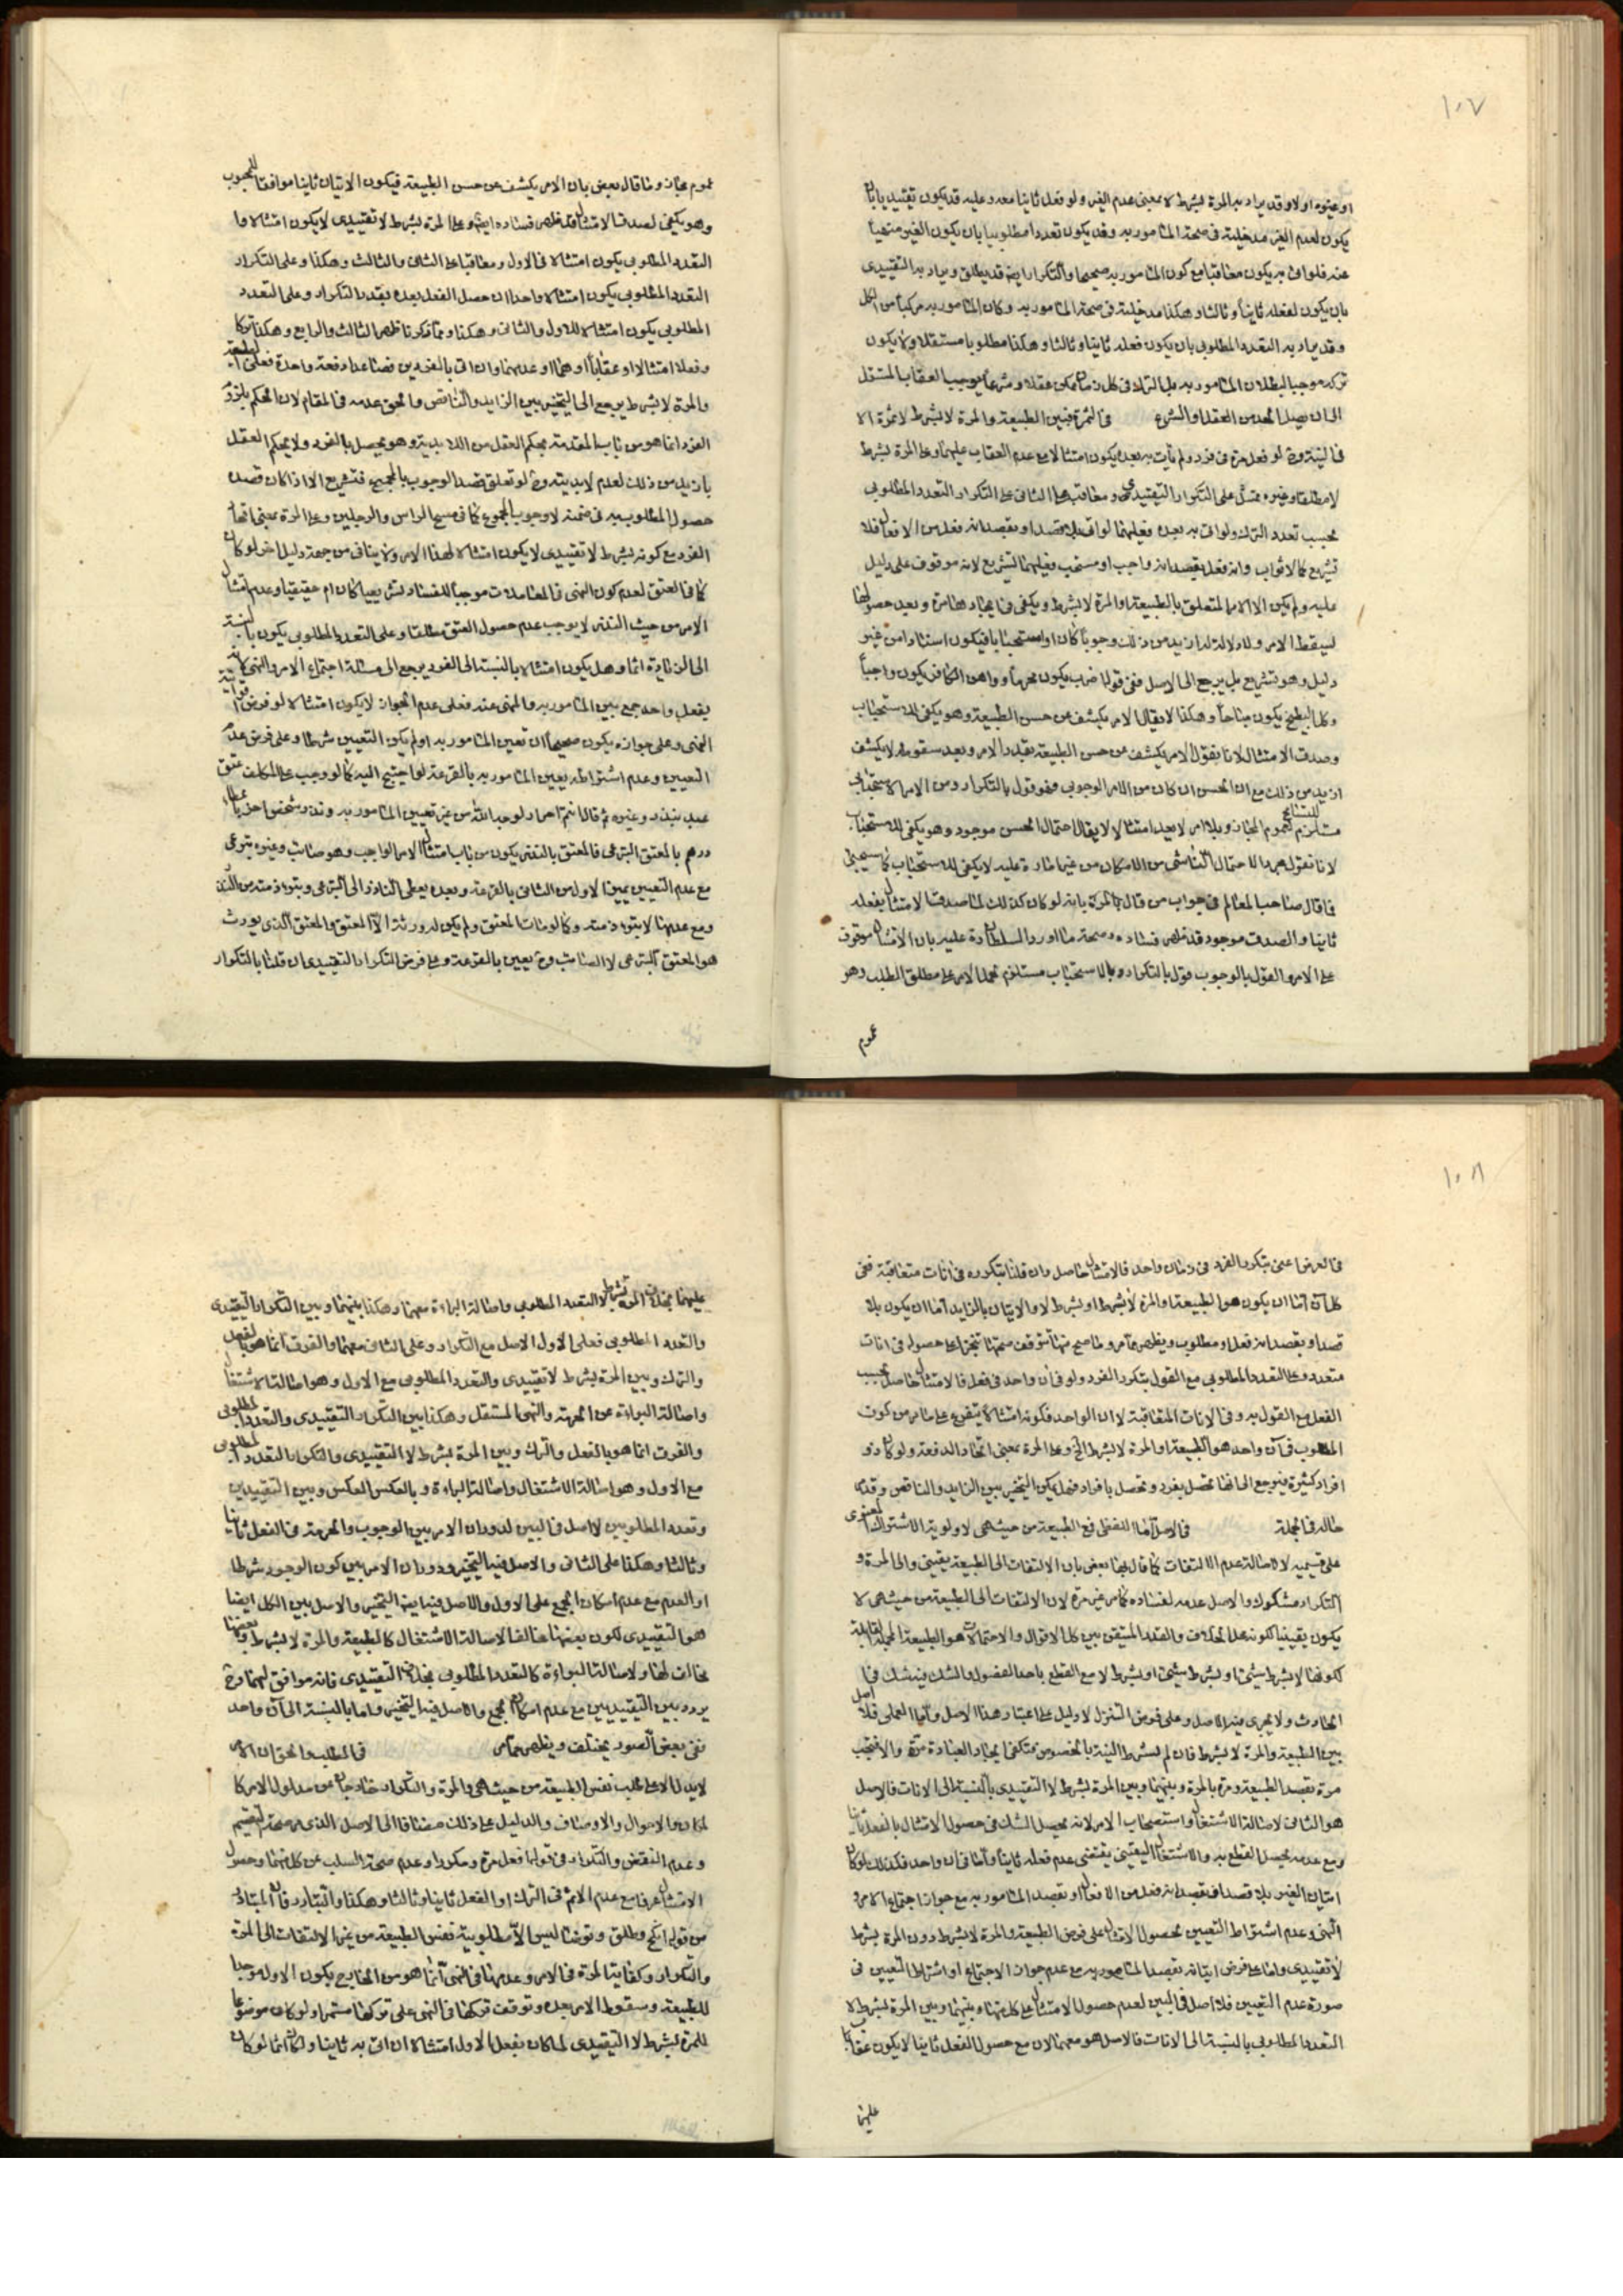 ١٠٧
او غيره اولا وقد يراد به المرة لبشرط لا بمعنى عدم الغير ولو فعل ثانيا معه وعليه قد يكون تقييديا بان
يكون لعدم الغير مدخلية فى صحة المامور به وقد يكون تعددا مطلوبيا بان يكون الغير منهيا
عنه فلو اتى به يكون معاقبا مع كون المامور به صحيحا والتكرار ايضا قد يطلق ويراد به التقييدى
بان يكون لفعله ثانيا وثالثا وهكذا مدخلية فى صحة المامور به وكان المامور به مركبا من الكل
وقد يراد به التعدد المطلوبى بان يكون فعله ثانيا وثالثا وهكذا مطلوبا مستقلا ولا يكون
تركه موجبا لبطلان المامور به بل الترك فى كل زمان يمكن عقلا وشرعا يوجب العقاب المستقل
الى ان يصل الحد من العقل او الشرع فى الثمرة فبين الطبيعة والمرة لابشرط لا ثمرة الا
فى النية وح لو فعل مرة فى فرد ولم يات به بعده يكون امتثالا مع عدم العقاب عليهما وعلى المرة بشرط
لا مطلقا وغيره ممتثل على التكرار التقييدى ومعاقب على الثانى على التكرار التعدد المطلوبى
بحسب تعدد الترك ولو اتى به بعده فعليهما لو اتى بلا قصد او بقصد انه فعل من الافعال فلا
تشريع كما لا ثواب وان فعل بقصد انه واجب او مستحب فعليهما تشريع لانه موقوف على دليل
عليه ولم يكن الا الامر المتعلق بالطبيعة او المرة لابشرط ويكفى فى ايجادها مرة وبعد حصولها
ليسقط الامر ولا دلالة له ازيد من ذلك وجوبا كان او استحبابا فيكون اسنادا من غير
دليل وهو تشريع بل يرجع الى الاصل ففى قولنا ضرب يكون محرما وواهن الكافر يكون واجبا
وكل البطيخ يكون مباحا وهكذا لا يقال الامر يكشف عن حسن الطبيعة وهو يكفى للاستحباب
وصدق الامتثال لانا نقول الامر يكشف عن حسن الطبيعة بقدر الامر وبعد سقوطه لا يكشف
ازيد من ذلك مع ان الحسن ان كان من الامر الوجوبى فهو قول بالتكرار ومن الامر الاستحبابى
مستلزم لعموم المجاز وبلا امر لا يعد امتثالا لا يقال احتمال الحسن موجود وهو يكفى للاستحباب للتسامح
لانا نقول مجرد الاحتمال الناشى من الامكان من غير امارة عليه لا يكفى للاستحباب كما سيجئ
فما قال صاحب المعالم فى جواب من قال بالمرة بانه لو كان كذلك لما صدق الامتثال بفعله
ثانيا والصدق موجود قد ظهر فساده وصحة ما اورد السلطان ره عليه بان الامتثال موقوف
على الامر والقول بالوجوب قول بالتكرار وبالاستحباب مستلزم لحمل الامر على مطلق الطلب وهو
عموم
عموم مجاز وما قال بعض بان الامر يكشف عن حسن الطبيعة فيكون الاتيان ثانيا موافقا للمحبوب
وهو يكفى لصدق الامتثال فقد ظهر فساده ايضا وعلى المرة بشرط لا تقييدى لا يكون امتثالا واما
التعدد المطلوبى يكون امتثالا فى الاول ومعاقبا على الثانى والثالث وهكذا وعلى التكرار
التعدد المطلوبى يكون امتثالا واحدا ان حصل الفعل بعده بقدر التكرار وعلى التعدد
المطلوبى يكون امتثالا للاول والثانى وهكذا ومما ذكرنا ظهر الثالث والرابع وهكذا تركا
وفعلا امتثالا او عقابا او هما او عدمهما وان اتى بالفردين فصاعدا دفعة واحدة فعلى الطبيعة
والمرة لابشرط يرجع الى التخيير بين الزايد والناقص والحق عدمه فى المقام لان الحكم بلزوم
الفرد انما هو من باب المقدمة بحكم العقل من اللابدية وهو يحصل بالفرد ولا يحكم العقل
بازيد من ذلك لعدم لابديته وح لو تعلق قصد الوجوب بالجميع فتشريع الا اذا كان قصده
حصول المطلوب به فى ضمنه لا وجوب المجموع كما فى مسح الراس والرجلين وعلى المرة بمعنى اتحاد
الفرد مع كونه بشرط لا تقييدى لا يكون امتثالا لهذا الامر ولا ينافى من جهة دليل اخر لو كان
كما فى العتق لعدم كون النهى فى المعاملات موجبا للفساد تشريعيا كان ام حقيقيا وعدم امتثال
الامر من حيث النذر لا يوجب عدم حصول العتق مطلقا وعلى التعدد المطلوبى يكون بالنسبة
الى الزيادة اثما وهل يكون امتثالا بالنسبة الى الفرد يرجع الى مسئلة اجتماع الامر والنهى لانه
بفعل واحد جمع بين المامور به والمنهى عنه فعلى عدم الجواز لا يكون امتثالا لو فرض
النهى وعلى جوازه يكون صحيحا ان تعين المامور به او لم يكن التعيين شرطا وعلى فرض عدم
التعيين وعدم اشتراطه يعيين المامور به بالقرعة لو احتيج اليه كما لو وجب على المكلف عتق
عبد بنذر وغيره ثم قال انتم احرار لوجه الله من غير تعيين المامور به ونذر شخص اخر باعطاء
درهم بالمعتق التبرعى فالمعتق بالنذر يكون من باب امتثال الامر الواجب وهو صائب وغيره تبرعى
مع عدم التعيين يميز الاول من الثانى بالقرعة وبعده يعطى الناذر الى التبرعى ويبرء ذمته من النذر
ومع عدمها لا يبرء ذمته وكما لو مات المعتق ولم يكن له ورثة الا المعتق والمعتق الذى يورث
هو المعتق التبرعى لا الصائب وح يعيين بالقرعة وعلى فرض التكرار التقييدى ان قلنا بالتكرار
١٠٨
فى العرض اعنى بتكرر الفرد فى زمان واحد فالامتثال حاصل وان قلنا بتكرره فى انات متعاقبة ففى
كل آن اما ان يكون هو الطبيعة او المرة لابشرط او بشرط لا والاتيان بالزايد اما ان يكون بلا
قصد او بقصد انه فعل او مطلوب ويظهر مما مر وما صح منها تتوقف صحتها تنجزا على حصوله فى انات
متعدد وعلى التعدد المطلوبى مع القول بتكرر الفرد ولو فى آن واحد فى فعل فالامتثال حاصل بحسب
الفعل مع القول به وفى الانات المتعاقبة لا ان الواحد فكونه امتثالا يتفرع على ما مر من كون
المطلوب فى آن واحد هو الطبيعة او المرة لابشرط الخ وعلى المرة بمعنى اتحاد الدفعة ولو كان ذو
افراد كثيرة فيرجع الى انها تحصل بفرد وتحصل بافراد فهل يمكن التخيير بين الزايد والناقص وقد مر
حاله فى الجملة فى الاصل اما اللفظى فمع الطبيعة من حيث هى لاولوية الاشتراك المعنوى
على قسيميه لا لاصالة عدم الالتفات كما قال بها بعض بان الالتفات الى الطبيعة يقينى والى المرة و
التكرار مشكوك والاصل عدمه لفساده كما مر غير مرة لان الالتفات الى الطبيعة من حيث هى لا
يكون يقينيا لكونه محل الخلاف والقدر المتيقن بين كل الاقوال والاحتمالات هو الطبيعة المجملة القابلة
لكونها لابشرط شيئ او بشرط شيئ او بشرط لا مع القطع باحد الفصول والشك فيشك فى
الحادث ولا يجرى فيه الاصل وعلى فرض التنزل لا دليل على اعتبار هذا الاصل واما العملى فلا اصل
بين الطبيعة والمرة لابشرط فان لم يشترط النية بالخصوص فتكفى ايجاد العبادة مرة والا فتجب
مرة بقصد الطبيعة ومرة بالمرة وبينهما وبين المرة بشرط لا التقييدى بالنسبة الى الانات فالاصل
هو الثانى لاصالة الاشتغال واستصحاب الامر لانه يحصل الشك فى حصول الامتثال بالفعل ثانيا
ومع عدمه يحصل القطع به والاشتغال اليقينى يقتضى عدم فعله ثانيا واما فى آن واحد فكذلك لو كان
اتيان الغير بلا قصد او بقصد انه فعل من الافعال او بقصد المامور به مع جواز اجتماع الامر و
النهى وعدم اشتراط التعيين لحصول الامتثال على فرض الطبيعة والمرة لابشرط دون المرة بشرط
لا تقييدى واما على فرض اتيانه بقصد المامور به مع عدم جواز الاجتماع او اشتراط التعيين فى
صورة عدم التعيين فلا اصل فى البين لعدم حصول الامتثال على كل منها وبينهما وبين المرة بشرط لا
التعدد المطلوبى بالنسبة الى الانات فالاصل هو معهما لان مع حصول الفعل ثانيا لا يكون عقاب
عليهما
عليهما بخلاف المرة بشرط لا التعدد المطلوبى واصالة البراءة معهما وهكذا بينهما وبين التكرار التقييدى
والتعدد المطلوبى فعلى الاول الاصل مع التكرار وعلى الثانى معهما والفرق انما هو بالفعل
والترك وبين المرة بشرط لا تقييدى والتعدد المطلوبى مع الاول وهو اصالة الاشتغال
واصالة البراءة عن الحرمة والنهى المستقل وهكذا بين التكرار التقييدى والتعدد المطلوبى
والفرق انما هو بالفعل والترك وبين المرة بشرط لا التقييدى والتكرار التعدد المطلوبى
مع الاول وهو اصالة الاشتغال واصالة البراءة وبالعكس العكس وبين التقييدين
وتعدد المطلوبين لا اصل فى البين لدوران الامر بين الوجوب والحرمة فى الفعل ثانيا
وثالثا وهكذا على الثانى والاصل فيها التخيير ودوران الامر بين كون الوجود شرطا
او العدم مع عدم امكان الجمع على الاول والاصل فيه ايضا التخيير والاصل بين الكل ايضا
هو التقييدى لكون بعضها مخالفا لاصالة الاشتغال كالطبيعة والمرة لابشرط وبعضها
مخالف لها ولاصالة البراءة كالتعدد المطلوبى بخلاف التقييدى فانه موافق لهما وح
يردد بين التقييديين مع عدم امكان الجمع والاصل فيه التخيير واما بالنسبة الى آن واحد
ففى بعض الصور يختلف ويظهر مما مر فى المطلب والحق ان الامر
لا يدل الا على طلب نفس الطبيعة من حيث هى والمرة والتكرار خارجان عن مدلول الامر كا
لمكان والاحوال والاوصاف والدليل على ذلك مضافا الى الاصل الذى مر صحة التقسيم
وعدم التناقض والتكرار فى قولنا فعل مرة ومكررا وعدم صحة السلب عن كل منهما وحصول
الامتثال عرفا مع عدم الاثم فى الترك او الفعل ثانيا وثالثا وهكذا والتبادر فان المتبادر
من قولنا انكح وطلق وتوضا ليس الا مطلوبية نفس الطبيعة من غير الالتفات الى المرة
والتكرار وكفاية المرة فى الامر وعدمها فى النهى انما هو من الخارج بكون الاول موجبا
للطبيعة وسقوط الامر بعده وتوقف تركها فى النهى على تركها مستمرا ولو كان موضوعا
للمرة بشرط لا التقييدى لما كان بفعل الاول امتثالا ان اتى به ثانيا ولكان اثما لو كان